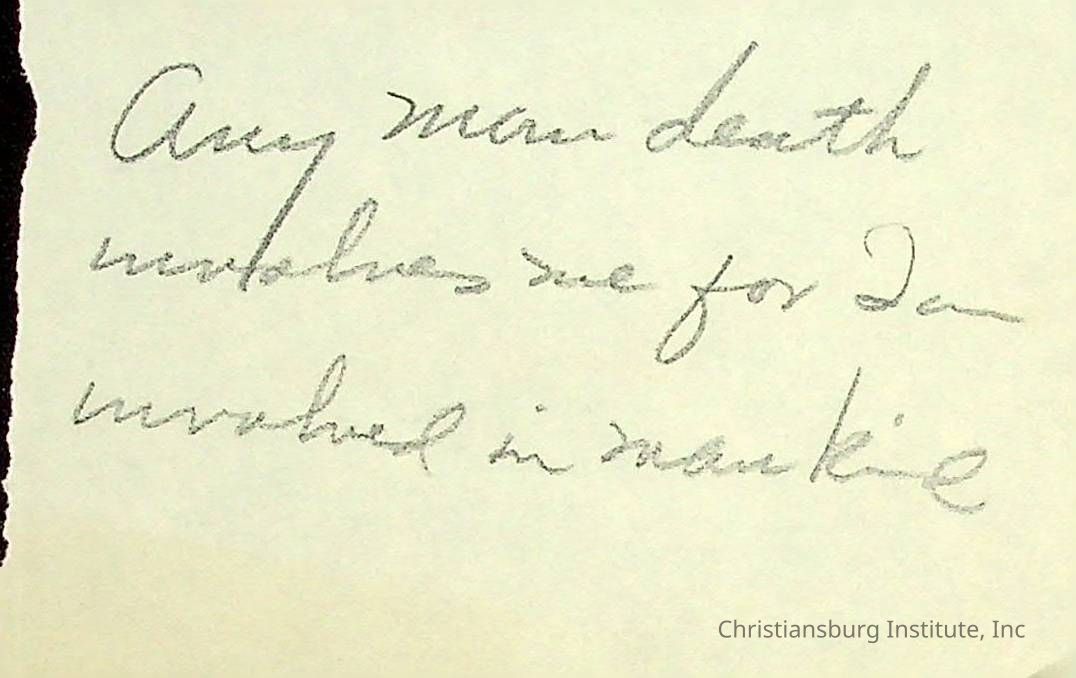 Any man death
involves me for I am
involved in mankind
Christiansburg Institute, Inc